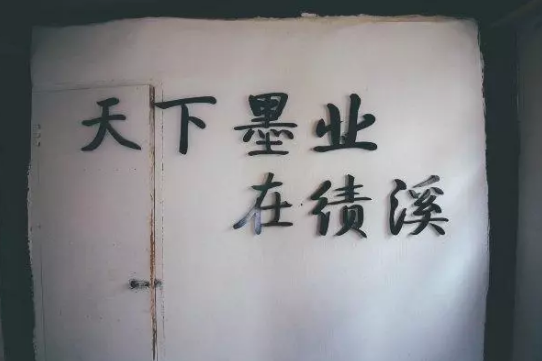 天下墨业
在绩溪